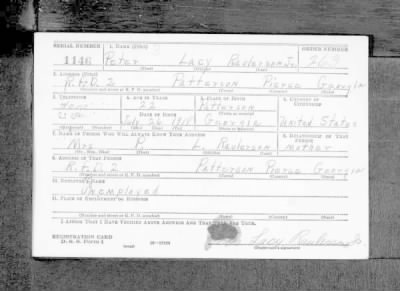 SERIAL NUMBER 1. NAME (Print) ORDER NUMBER
1146 Peter Lacy Raulerson Jr. 269
(First) (Middle) (Last)
2. ADDRESS (Print)
R.F.D. 2 Patterson Pierce Georgia
(Number and street or R. F. D. number) (Town) (County) (State)
3. TELEPHONE 4. AGE IN YEARS 5. PLACE OF BIRTH 6. COUNTRY OF CITIZENSHIP
none 22 Patterson
DATE OF BIRTH
1918 Georgia United States
7. NAME OF PERSON WHO WILL ALWAYS KNOW YOUR ADDRESS 8. RELATIONSHIP OF THAT PERSON
Mrs P. L. Raulerson mother
(Mr., Mrs., Miss) (First) (Middle) (Last)
9. ADDRESS OF THAT PERSON
R.F.D. 2 Patterson Pierce Georgia
(Number and street or R. F. D. number) (Town) (County) (State)
10. EMPLOYER'S NAME
Unemployed
11. PLACE OF EMPLOYMENT OR BUSINESS
(Number and street or R. F. D. number) (Town) (County) (State)
I AFFIRM THAT I HAVE VERIFIED ABOVE ANSWERS AND THAT THEY ARE TRUE.
REGISTRATION CARD
D. S. S. Form 1 Lacy Raulerson Jr
(Registrant's signature)